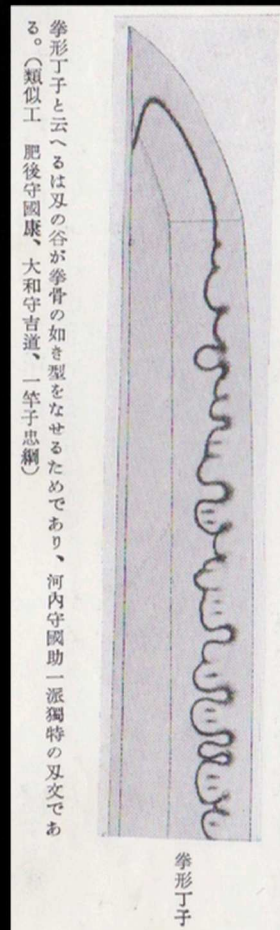 拳形丁子
拳形丁子と云へるは刄の谷が拳骨の如き型をなせるためであり、河内守國助一派獨特の刄文であ
る。(類似工　肥後守國康、大和守吉道、一竿子忠綱)